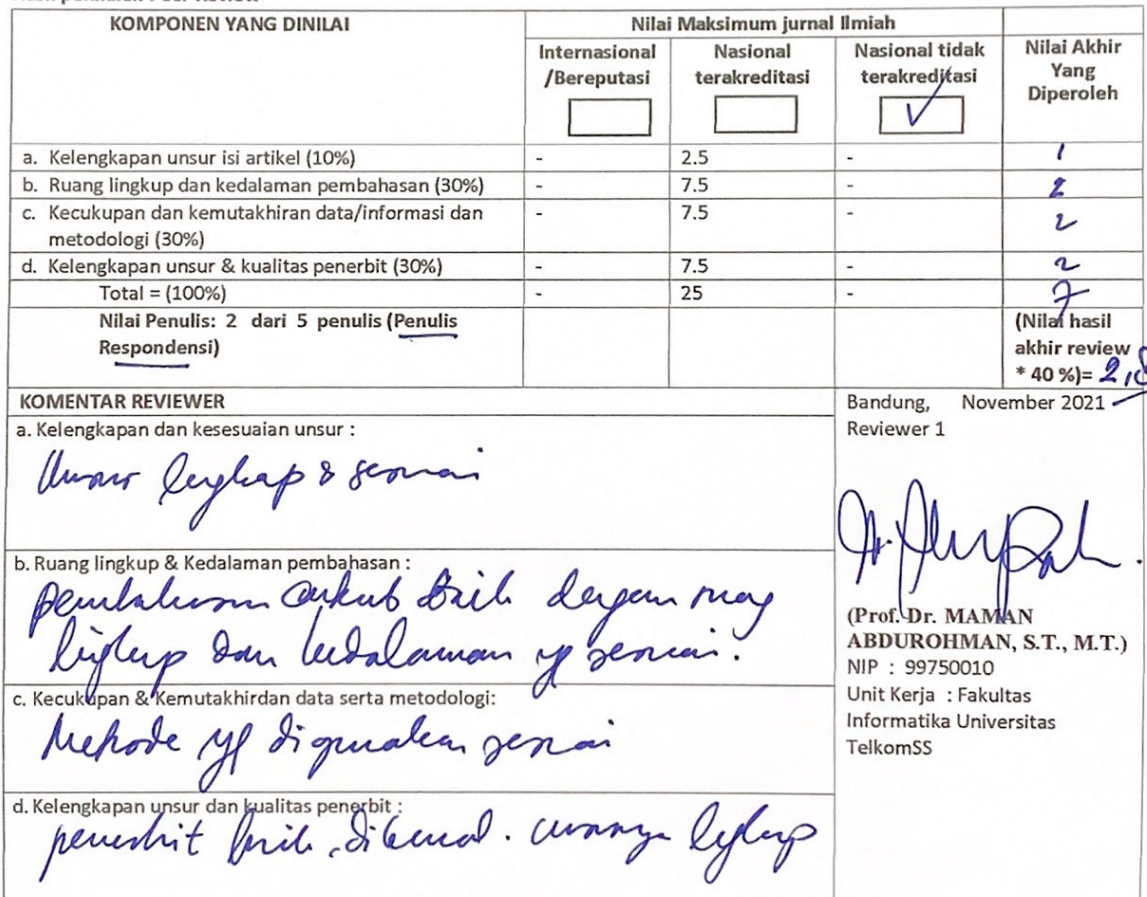 KOMPONEN YANG DINILAI
Nilai Maksimum jurnal Ilmiah
Internasional /Bereputasi
Nasional terakreditasi
Nasional tidak terakreditasi
✓
Nilai Akhir Yang Diperoleh
a. Kelengkapan unsur isi artikel (10%) - 2.5 - 1
b. Ruang lingkup dan kedalaman pembahasan (30%) - 7.5 - 2
c. Kecukupan dan kemutakhiran data/informasi dan metodologi (30%) - 7.5 - 2
d. Kelengkapan unsur & kualitas penerbit (30%) - 7.5 - 2
Total = (100%) - 25 - 7
Nilai Penulis: 2 dari 5 penulis (Penulis
Respondensi)
(Nilai hasil
akhir review
* 40 %)= 2,8
KOMENTAR REVIEWER
a. Kelengkapan dan kesesuaian unsur :
Unsur lengkap & sesuai
b. Ruang lingkup & Kedalaman pembahasan :
pembahasan cukup baik dengan ruang
lingkup dan kedalaman yg sesuai.
c. Kecukupan & Kemutakhirdan data serta metodologi:
Metode yg digunakan sesuai
d. Kelengkapan unsur dan kualitas penerbit :
penerbit baik, dikenal. unsurnya lengkap
Bandung, November 2021
Reviewer 1
(Prof. Dr. MAMAN
ABDUROHMAN, S.T., M.T.)
NIP : 99750010
Unit Kerja : Fakultas
Informatika Universitas
TelkomSS